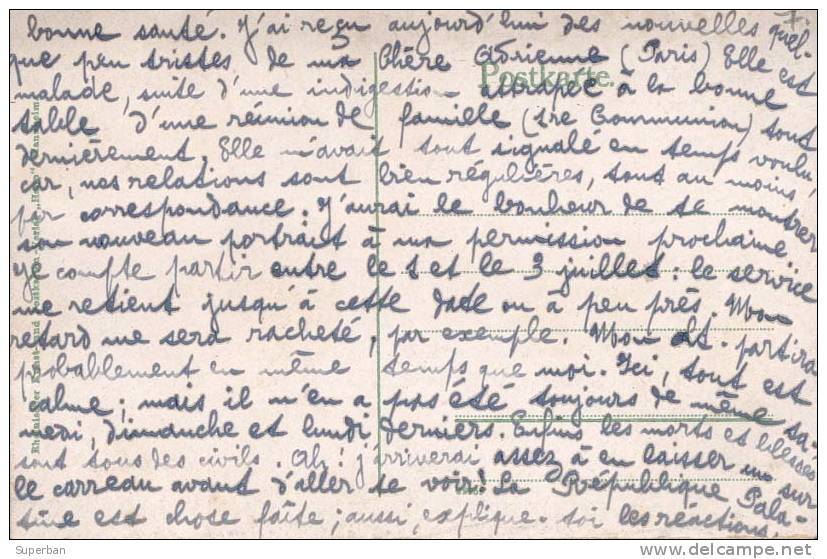 7.
bonne santé. J'ai reçu aujourd'hui des nouvelles quel-
que peu tristes de ma Chère Adrienne (Paris) Elle est
Postkarte.
malade, suite d'une indigestion attrapée à la bonne
table d'une réunion de famille (1re Communion) tout
dernièrement. Elle m'avait tout signalé en temps voulu,
car, nos relations sont bien régulières, tout au moins
par correspondance. J'aurai le bonheur de te montrer
son nouveau portrait à ma permission prochaine.
Je compte partir entre le 1 et le 3 juillet : le service
me retient jusqu'à cette date ou à peu près. Mon
retard me sera racheté, par exemple. Mon Lt. partira
probablement en même temps que moi. Ici, tout est
calme ; mais il n'en a pas été toujours de même sa-
medi, dimanche et lundi derniers. Enfin les morts et blessés
sont tous des civils. Ah ! j'arriverai assez à en laisser un sur
le carreau avant d'aller te voir ! La République Pala-
tine est chose faite ; aussi, explique-toi les réactions.
Rheinischer Kunst- und Postkarten-Verlag Mannheim
© Superban
www.delcampe.net